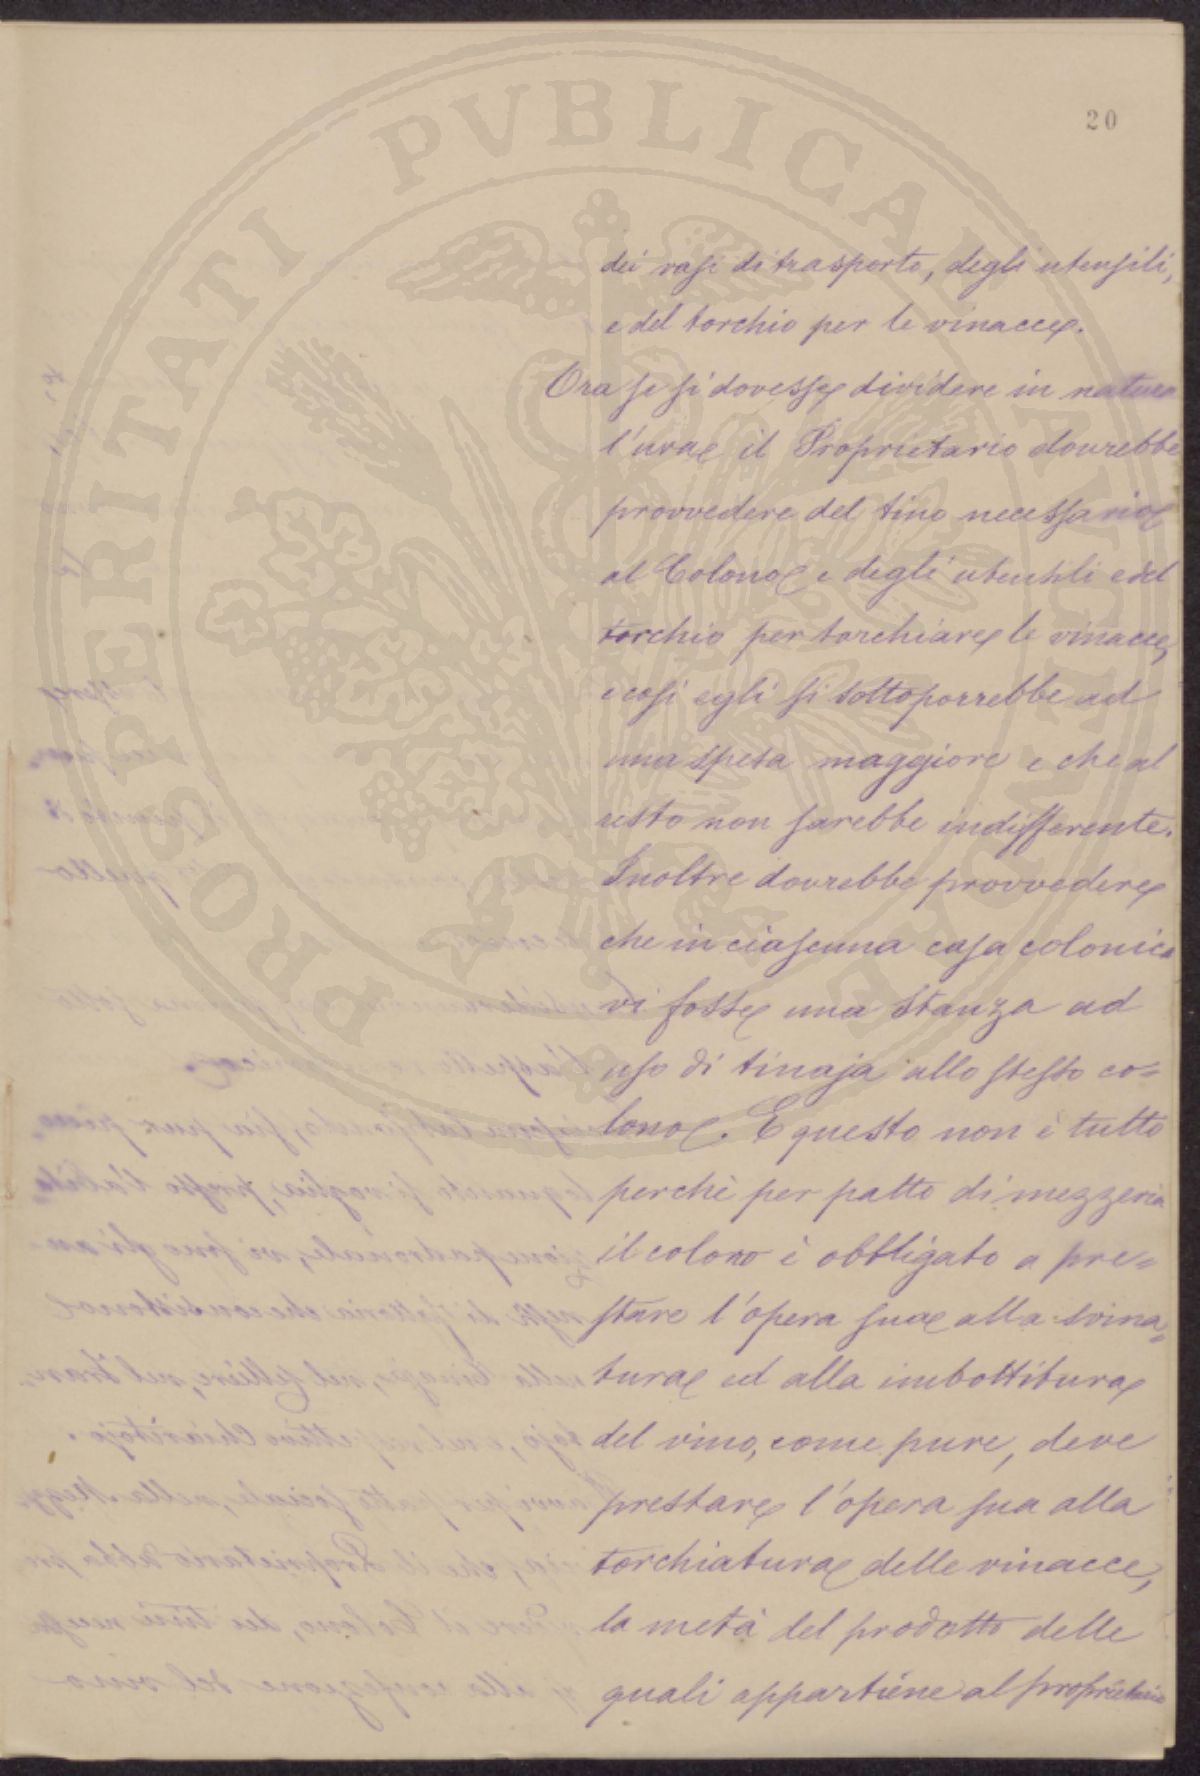 PROSPERITATI PVBLICAE
20
dei vasi di trasporto, degli utensili,
e del torchio per le vinacce.
Ora se si dovesse dividere in natura
l'uva il Proprietario dovrebbe
provvedere del tino necessario
al Colono e degli utensili e del
torchio per torchiare le vinacce,
e così egli si sottoporrebbe ad
una spesa maggiore e che al
resto non sarebbe indifferente.
Inoltre dovrebbe provvedere
che in ciascuna casa colonica
vi fosse una stanza ad
uso di tinaja allo stesso co=
lono. E questo non è tutto
perchè per patto di mezzeria
il colono è obbligato a pre=
stare l'opera sua alla svina=
tura ed alla imbottitura
del vino, come pure, deve
prestare l'opera sua alla
torchiatura delle vinacce,
la metà del prodotto delle
quali appartiene al proprietario